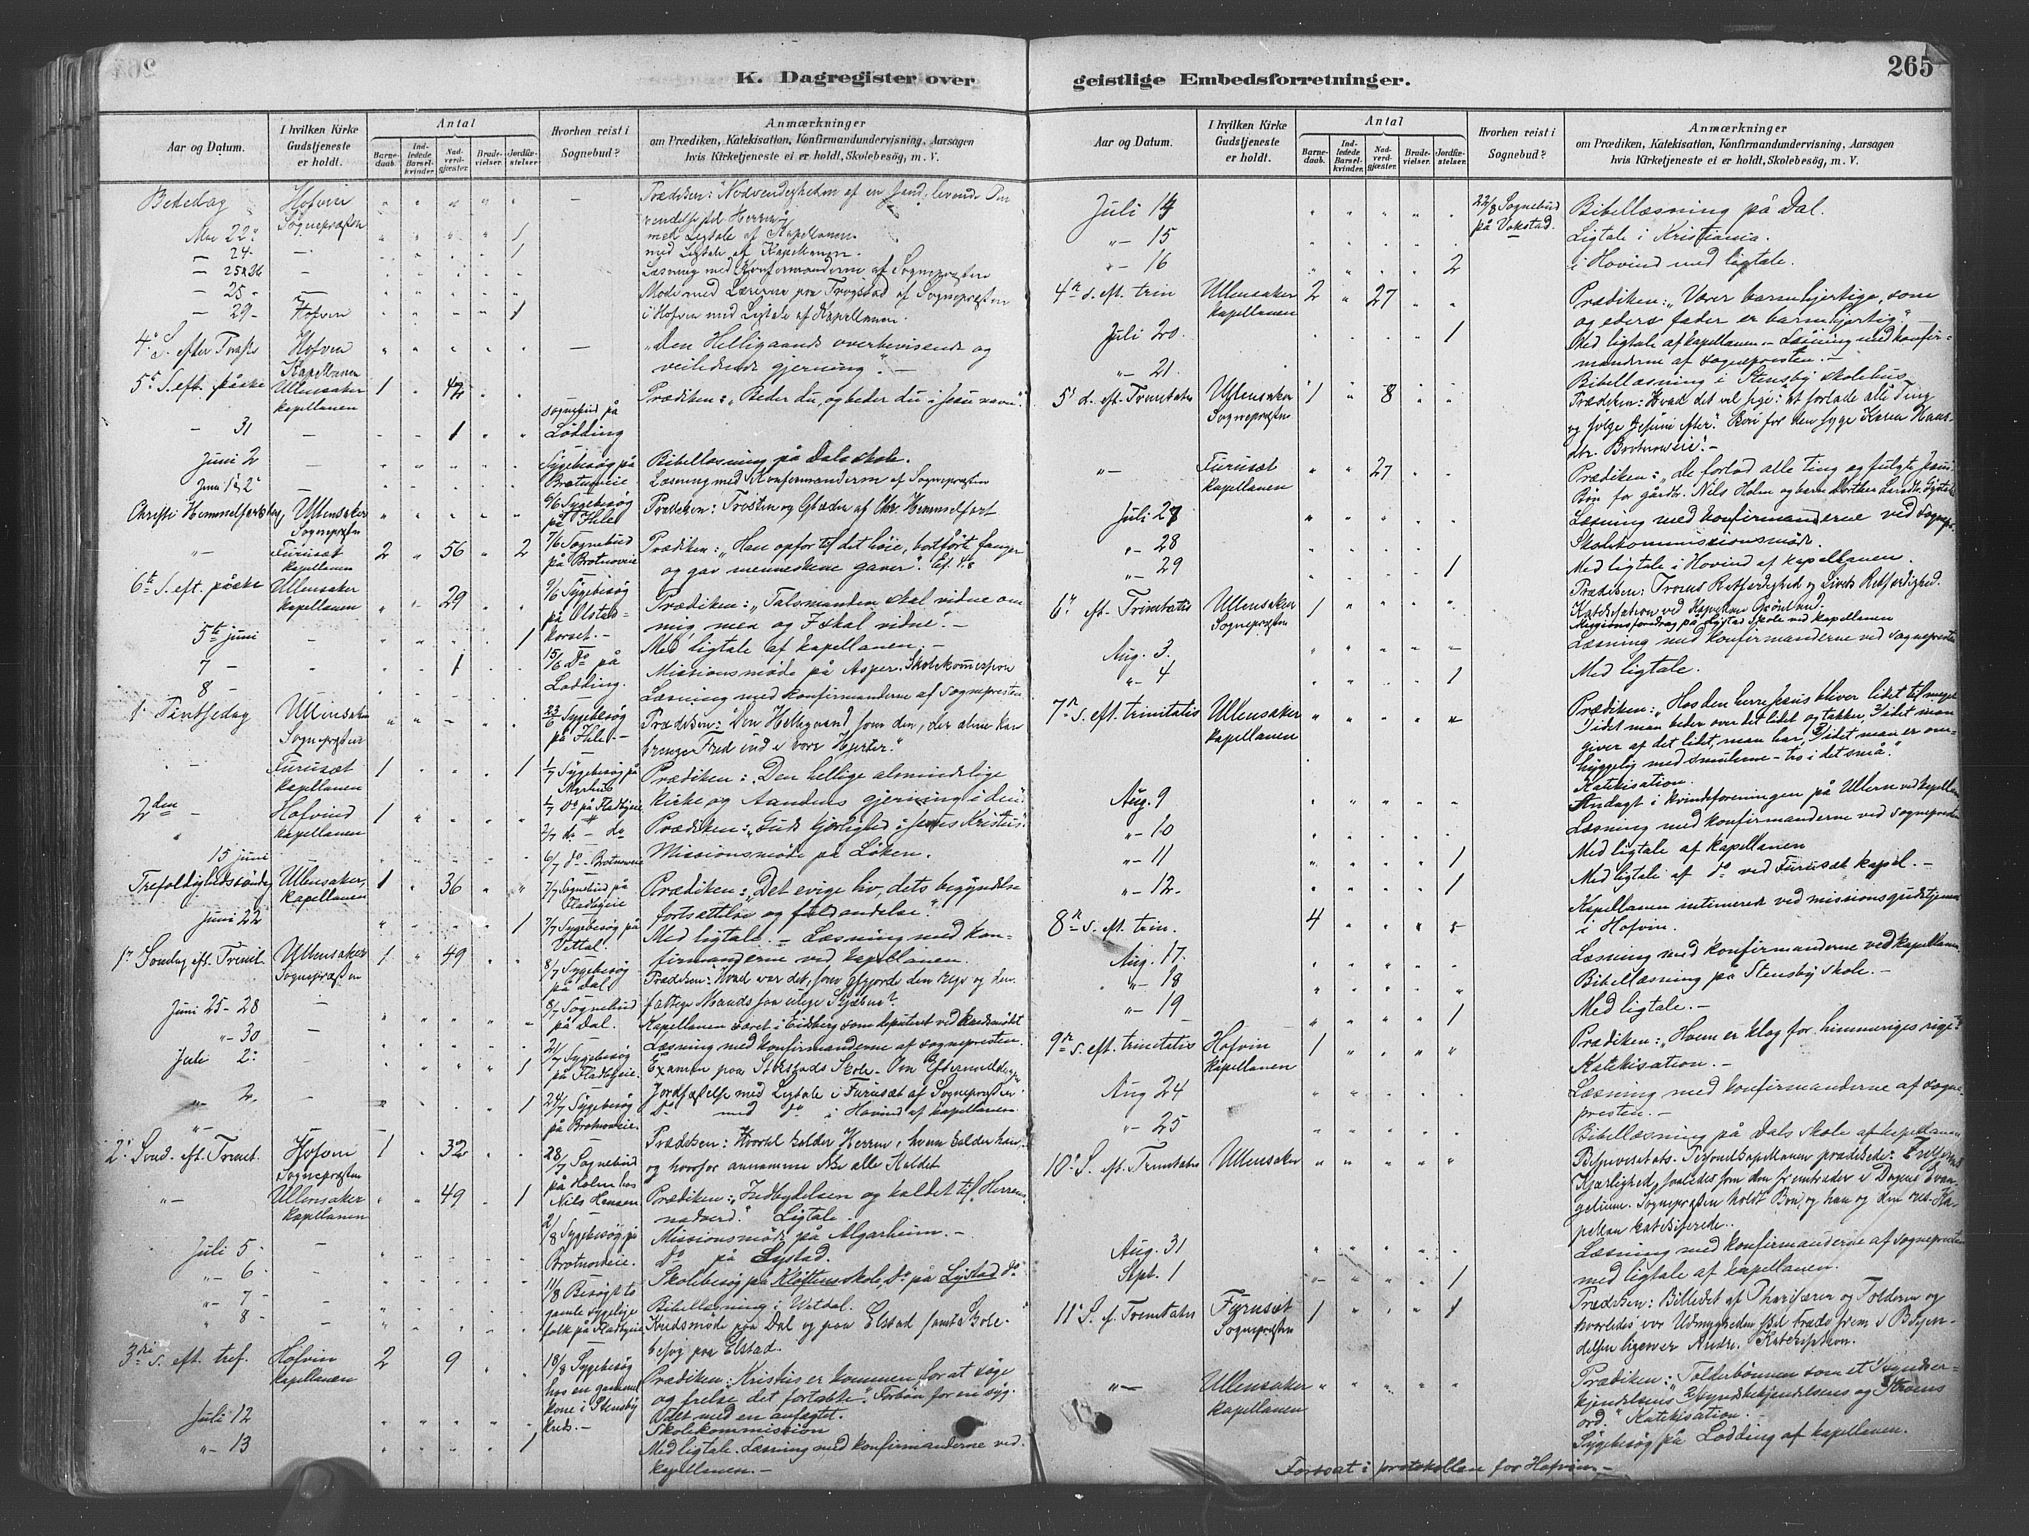 K. Dagregister over
Aar og Datum.
I hvilken Kirke Gudstjeneste er holdt.
Antal
Barnedaab.
Indledede Barselkvinder.
Nadverdgjæster.
Brudevielser.
Jordfæstelser.
Hvorhen reist i Sognebud?
Anmærkninger
om Prædiken, Katekisation, Konfirmandundervisning, Aarsagen
hvis Kirketjeneste ei er holdt, Skolebesög, m. V.
Bededag Hofvin Prædiken: "Nødvendigheden af en sand, levende
Sognepræsten
Mai 22 1 med Ligtale af Kapellanen.
24 1 med Ligtale af Kapellanen.
25 26 Læsning med Konfirmanderne af Sognepræsten
25 Møde med Lærerne paa Trogstad af Sognepræsten
29 Hofvin 1 i Hofvin med Ligtale af Kapellanen.
4. S. efter Paaske Hofvin "Den Helligaands overbevisende og
Kapellanen veiledende gjerning".
5te S. eft. påske Ullensaker 1 42 Prædiken: "Beder du, og beder du i Jesu navn".
kapellanen
31 1 Sognebud på Lødding
Juni 2 Sygebesøg på Brotnoveie Bibellæsning på Dals skole.
Juni 1 & 2 Læsning med Konfirmanderne af Sognepræsten
Christi Himmelfartsdag Ullensaker 6/6 Sygebesøg på Hile Prædiken: Trøsten og Glæden af Chr. Himmelfart
Sognepræsten
Furuset 2 56 2 7/6 Sognebud på Brotnoveie Prædiken: "Han opfor til det høie, bortførte fanger
kapellanen og gav menneskene gaver". Ef. 4.8
6te S. eft. påske Ullensaker 29 9/6 Sygebesøg på Olstad- Prædiken: "Talsmanden skal vidne om
kapellanen mig, men og I skal vidne".
5te juni 1 15/6 Do på Lodding. Med ligtale af kapellanen.
7 1 Missionsmøde på Asper. Skolekommission
8 Læsning med konfirmanderne af sognepresten
1. Pintsedag Ullensaker 23/6 Sygebesøg på Hile Prædiken: Den Helligaand, som den, der alene kan
Sognepræsten bringe Fred ind i vore Hjerter."
Furuset 1 1 1/7 Sygebesøg på Myrhus Prædiken: "Den hellige almindelige
kapellanen 1/7 Do på Fladbyeie kirke og Aandens gjerning i den
2den Hofvind 1 2/7 do - do Prædiken: "Guds kjærlighed i Jesus Kristus".
kapellanen
15 juni 6/7 do - Brotnoveie Missionsmøde på Løken.
Trefoldighedssöndag Ullensaker, 1 36 7/7 Sognebud på Fladbyeie Prædiken: "Det evige liv, dets begyndelse
kapellanen fortsættelse og fuldendelse".
Juni 22 1 7/7 Sygebesøg på Vettal. Med ligtale. - Læsning med kon-
firmanderne ved kapellanen.
1ste Søndag eft. Trinit. Ullensaker 1 49 8/7 Sygebesøg på Dal Prædiken: Hvad var det, som gjorde den rige og den
Sognepræsten fattige Mands saa ulige Skjæbne?
Juni 25-28 18/7 Sognebud på Dal. Kapellanen været i Eidsberg som deputeret ved kredsmødet
30 Læsning med konfirmanderne af sognepresten.
Juli 2 1 21/7 Sygebesøg på Fladbyeie. Examen paa Skole.
2 1 24/7 Sygebesøg på Brotnoveie. Jordfæstelse med Ligtale i Furuset af Sognepræsten
do med do i Hovind af kapellanen
2. Sönd. eft. Trinit. Hofvin 1 32 28/7 Sognebud på Holm hos Nils Hansen Prædiken: Hvortil kalder Herren, hvem kalder han,
Sognepræsten og hvorfor annamme ikke alle Kaldet
Ullensaker 49 1 Prædiken: "Indbydelsen og kaldet til Herrens
kapellanen nadverd." Ligtale.
Juli 5 2/8 Sygebesøg på Brotnoveie. Missionsmøde på Algarheim.
6 do på Lystad.
7 11/8 Besøgt to gamle sygelige folk på Fladbyeie Skolebesøg på Kløftens skole, Do på Lystad do
8 Bibellæsning i Vetdal.
Kredsmøde paa Dal og paa Elstad samt Skole-
besøg paa Elstad.
3die s. eft. tref. Hofvin 2 9 18/8 Sygebesøg hos en gammel kone i Stensby kreds. Prædiken: Kristus er kommen for at søge
kapellanen og frelse det fortabte".
Juli 12 Skolekommission
13 1 Med ligtale. Læsning med konfirmanderne ved
kapellanen.
geistlige Embedsforretninger.
265
Aar og Datum.
I hvilken Kirke Gudstjeneste er holdt.
Antal
Barnedaab.
Indledede Barselkvinder.
Nadverdgjæster.
Brudevielser.
Jordfæstelser.
Hvorhen reist i Sognebud?
Anmærkninger
om Prædiken, Katekisation, Konfirmandundervisning, Aarsagen
hvis Kirketjeneste ei er holdt, Skolebesög, m. V.
Juli 14 22/8 Sognebud på Vakstad. Bibellæsning på Dal.
15 Ligtale i Kristiania.
16 2 i Hovind med ligtale.
4de s. eft. trin Ullensaker 2 27 Prædiken: "Værer barmhjertige, som
kapellanen og eders fader er barmhjertig".
Juli 20. 1 Med ligtale af kapellanen - Læsning med konfir-
manderne af sognepresten.
21. Bibellæsning i Stensby skolehus.
5te s. eft. Trinitatis Ullensaker 1 8 Prædiken: Hvad det vil sige: "at forlade alle Ting
Sognepræsten og følge Jesum efter." Bøn for den syge Karen Hans-
dtr. Brotnoveie".
Furuset 27 Prædiken: "De forlod alle ting og fulgte Jesus"
kapellanen Bøn for gårdb. Nils Holm
Juli 27 Læsning med konfirmanderne ved sognepr.
28 Skolekommissionsmøde.
29 1 Med ligtale i Hovind af kapellanen.
6te eft. Trinitatis Ullensaker 1 Prædiken: Troens Retfærdighed og Livets Retfærdighed.
Sognepræsten Katekisation ved Kapellan Grønlund.
Missionsforedrag på Lystad Skole ved kapellanen
Aug. 3. Læsning med konfirmanderne ved sognepresten
4 1 Med ligtale.
7de s. eft. trinitatis Ullensaker Prædiken: "Hos den herre Jesus bliver lidet til meget
kapellanen 1) idet man beder over det lidet og takker, 2) idet man
giver af det lidet, man har, 3) idet man er
hyggelig med smulerne - tro i det små".
Katekisation.
Aug. 9 Andagt i kvindeforeningen på Ullern ved kapellanen
10 Læsning med konfirmanderne ved sognepresten
11 1 Med ligtale af kapellanen
12. 1 Med ligtale af do ved Furuset kapel.
8de s. eft. trin. 4 5 Kapellanen intimerede ved missionsgudstjenesten
i Hofvin.
Aug. 17. Læsning med konfirmanderne ved kapellanen
18 Bibellæsning på Stensby skole.
19 1 Med ligtale.
9de s. eft. trinitatis Hofvin 1 Prædiken: "Hvem er klog for himmeriges rige?
kapellanen Katekisation.
Aug 24 Læsning med konfirmanderne af sogne-
presten.
25 Bibellæsning på Dals skole af kapellanen
10. S. eft. Trinitatis Ullensaker Bispevisitats. Personelkapellanen prædikede:
Kjærlighed, saaledes som den fremtræder i Dagens Evan-
gelium. Sognepræsten holdt Bøn, og han og den res. Ka-
pellan katekiserede.
Aug. 31 Læsning med konfirmanderne af sognepresten
Sept. 1 1 med ligtale af kapellanen.
11. S. e. Trinitatis Furuset 1 1 Prædiken: Billedet af Pharisæren og Tolderen og
Sognepræsten hvorledes vor Ydmyghed skal træde frem i Bøjen-
Katekisation.
Ullensaker Prædiken: "Tolderbønnen som et "syndser-
kapellanen kjendelsens, syndsbekjendelsens og troens
ord." Katekisation.
Sygebesøg på Lodding af kapellanen.
Fortsat i protokollen for Hofvin.